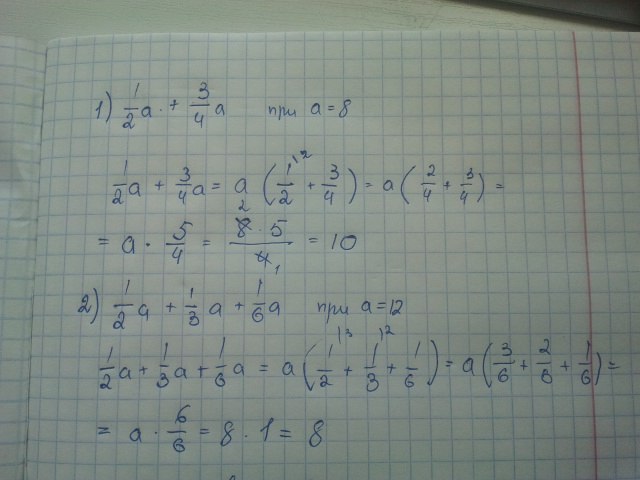 1) 1/2 a + 3/4 a при a = 8
1/2 a + 3/4 a = a (1/2 \2 + 3/4) = a (2/4 + 3/4) =
= a · 5/4 = 8 2 · 5 / 4 1 = 10
2) 1/2 a + 1/3 a + 1/6 a при a = 12
1/2 a + 1/3 a + 1/6 a = a (1/2 \3 + 1/3 \2 + 1/6) = a (3/6 + 2/6 + 1/6) =
= a · 6/6 = 8 · 1 = 8